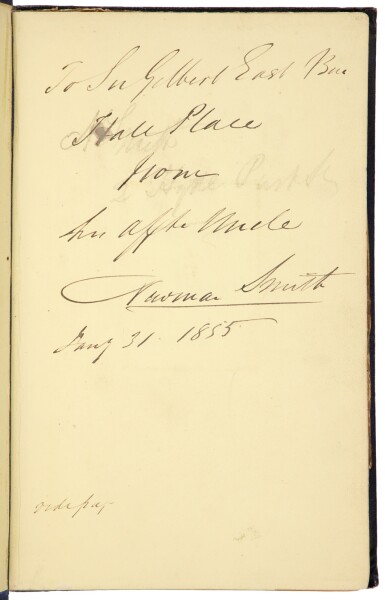 To Sir Gilbert East Bar
Hall Place
from
his affte Uncle
Newman Smith
Jany 31. 1855